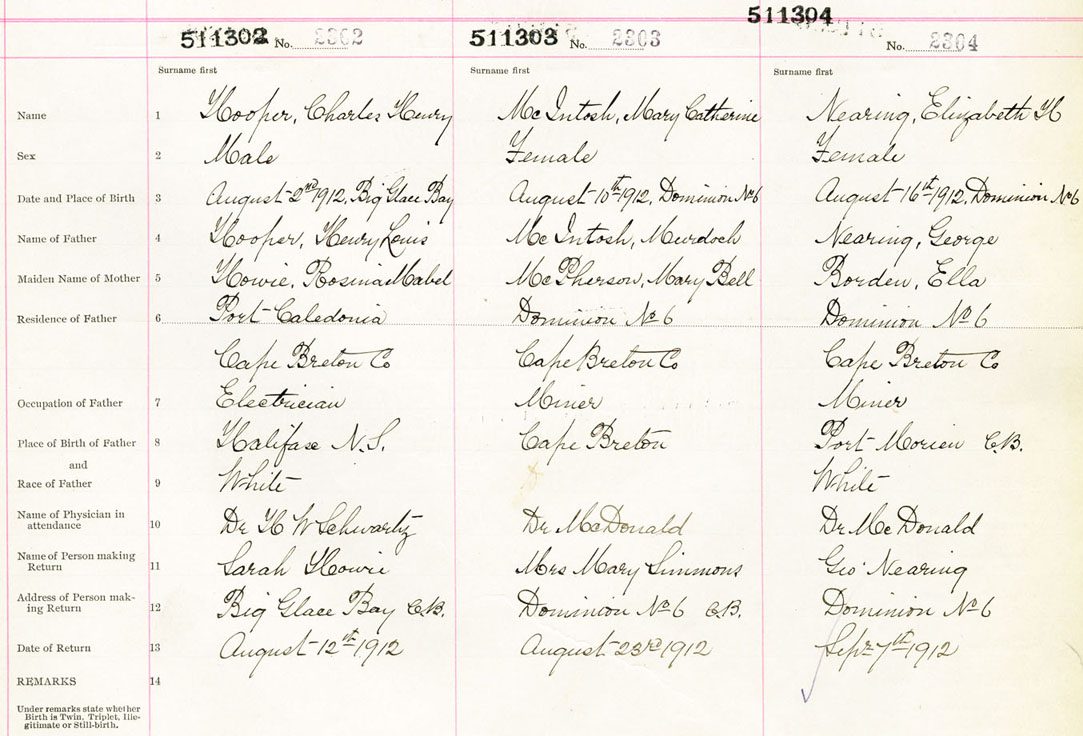 511304
511302 No. 2302 511303 No. 2303 No. 2304
Surname first Surname first Surname first
Name 1 Hooper, Charles Henry McIntosh, Mary Catherine Nearing, Elizabeth H
Sex 2 Male Female Female
Date and Place of Birth 3 August 2nd 1912, Big Glace Bay August 10th 1912, Dominion No 6 August 16th 1912, Dominion No 6
Name of Father 4 Hooper, Henry Louis McIntosh, Murdoch Nearing, George
Maiden Name of Mother 5 Howie, Rosina Mabel McPherson, Mary Bell Borden, Ella
Residence of Father 6 Port Caledonia Dominion No 6 Dominion No 6
Cape Breton Co Cape Breton Co Cape Breton Co
Occupation of Father 7 Electrician Miner Miner
Place of Birth of Father 8 Halifax N.S. Cape Breton Port Morien C.B.
and
Race of Father 9 White White
Name of Physician in
attendance 10 Dr H W Schwartz Dr McDonald Dr McDonald
Name of Person making
Return 11 Sarah Howie Mrs Mary Simmons Geo Nearing
Address of Person mak-
ing Return 12 Big Glace Bay C.B. Dominion No 6 C.B. Dominion No 6
Date of Return 13 August 12th 1912 August 23rd 1912 Sept 7th 1912
REMARKS 14
Under remarks state whether
Birth is Twin, Triplet, Ille-
gitimate or Still-birth.